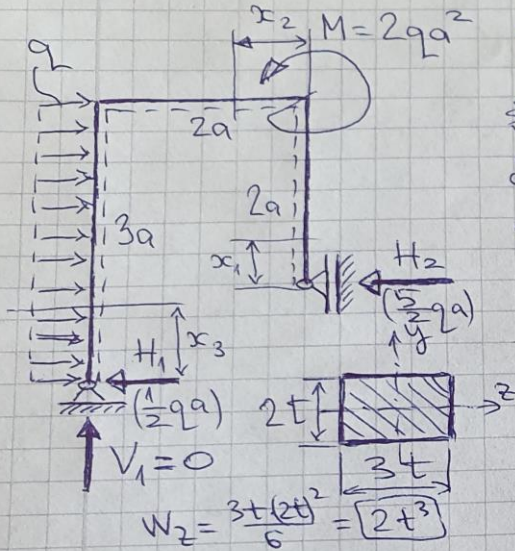 x₂
M = 2qa²
q
2a
2a
3a
x₁
H₂
(5/2 qa)
x₃
H₁
(1/2 qa)
y
z
2t
3t
V₁ = 0
W_z = 3t(2t)²/6 = 2t³